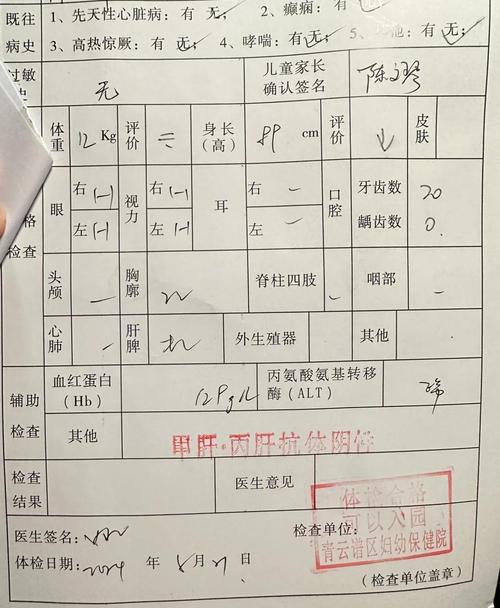 既往 1、先天性心脏病：有 无； 2、癫痫：有 无
病史 3、高热惊厥：有 无； 4、哮喘：有 无； 5、 ：有 无
过敏史 无 儿童家长确认签名 陈
体重 12 Kg 评价 身长（高） 89 cm 评价 ↓ 皮肤
眼 右 (-) 左 (-) 视力 右 (-) 左 (-) 耳 右 - 左 - 口腔 牙齿数 20 龋齿数 0.
格检查
头颅 - 胸廓 脊柱四肢 - 咽部 -
心肺 - 肝脾 外生殖器 其他
辅助检查 血红蛋白（Hb） 129g/L 丙氨酸氨基转移酶（ALT）
其他 甲肝·丙肝抗体阴性
检查结果 医生意见
体检合格
可以入园
青云谱区妇幼保健院
医生签名： 检查单位：
体检日期：2024 年 8 月 21 日
（检查单位盖章）